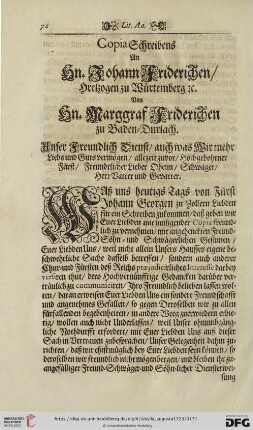 72 Lit. Aa.
Copia Schreibens
An
Hn. Johann Friderichen/
Hertzogen zu Würtemberg ꝛc.
Von
Hn. Marggraf Friderichen
zu Baden-Durlach.
Unser Freundlich Dienst/ auch was Wir mehr
Liebs und Guts vermögen/ allezeit zuvor/ Hochgebohrner
Fürst/ Freundtlicher Lieber Oheim/ Schwager/
Herr Vatter und Gevatter.
WAß uns heutigs Tags von Fürst
Johann Georgen zu Zollern Liebden
für ein Schreiben zukommen/ daß geben wir
Euer Liebden aus innligender Copia freund-
lich zu vernehmen/ mit angehencktem Freund-
Söhn- und Schwägerlichen Gesinnen/
Euer Liebden Uns/ weil nicht allein Unsers Hausses eigene be-
schwehrliche Sache dasselb betreffen/ sondern auch anderer
Chur-und Fürsten des Reichs præjudicirliches Interesse darbey
versiren thut/ dero Hochvernünfftige Gedancken darüber ver-
träulich zu communiciren/ Ihro Freundlich belieben lassen wol-
len/ daran erweisen Euer Liebden Uns ein sondere Freundschafft
und angenehmes Gefallen/ so gegen Deroselben wir zu allen
fürfallenden begebenheiten/ in andere Weeg zuerwidern erbie-
tig/ wollen auch nicht Underlassen/ weil Unser ohnumbgäng-
liche Nothdurfft erfordert/ mit Euer Liebden Uns auß dieser
Sach in Vertrauen zubesprachen/ Unser Gelegenheit dahin zu-
richten/ daß wir ehistmüglich bey Euer Liebden seyn können/ so
deroselben wir freundlich nicht
angefälliger Freund-Schwager-und Söhn-licher Dienstserwei-
sung
https://digi.ub.uni-heidelberg.de/diglit/
© Universitätsbibliothek Heidelberg
UNIVERSITÄTS-
BIBLIOTHEK
HEIDELBERG
Gefördert durch
DFG